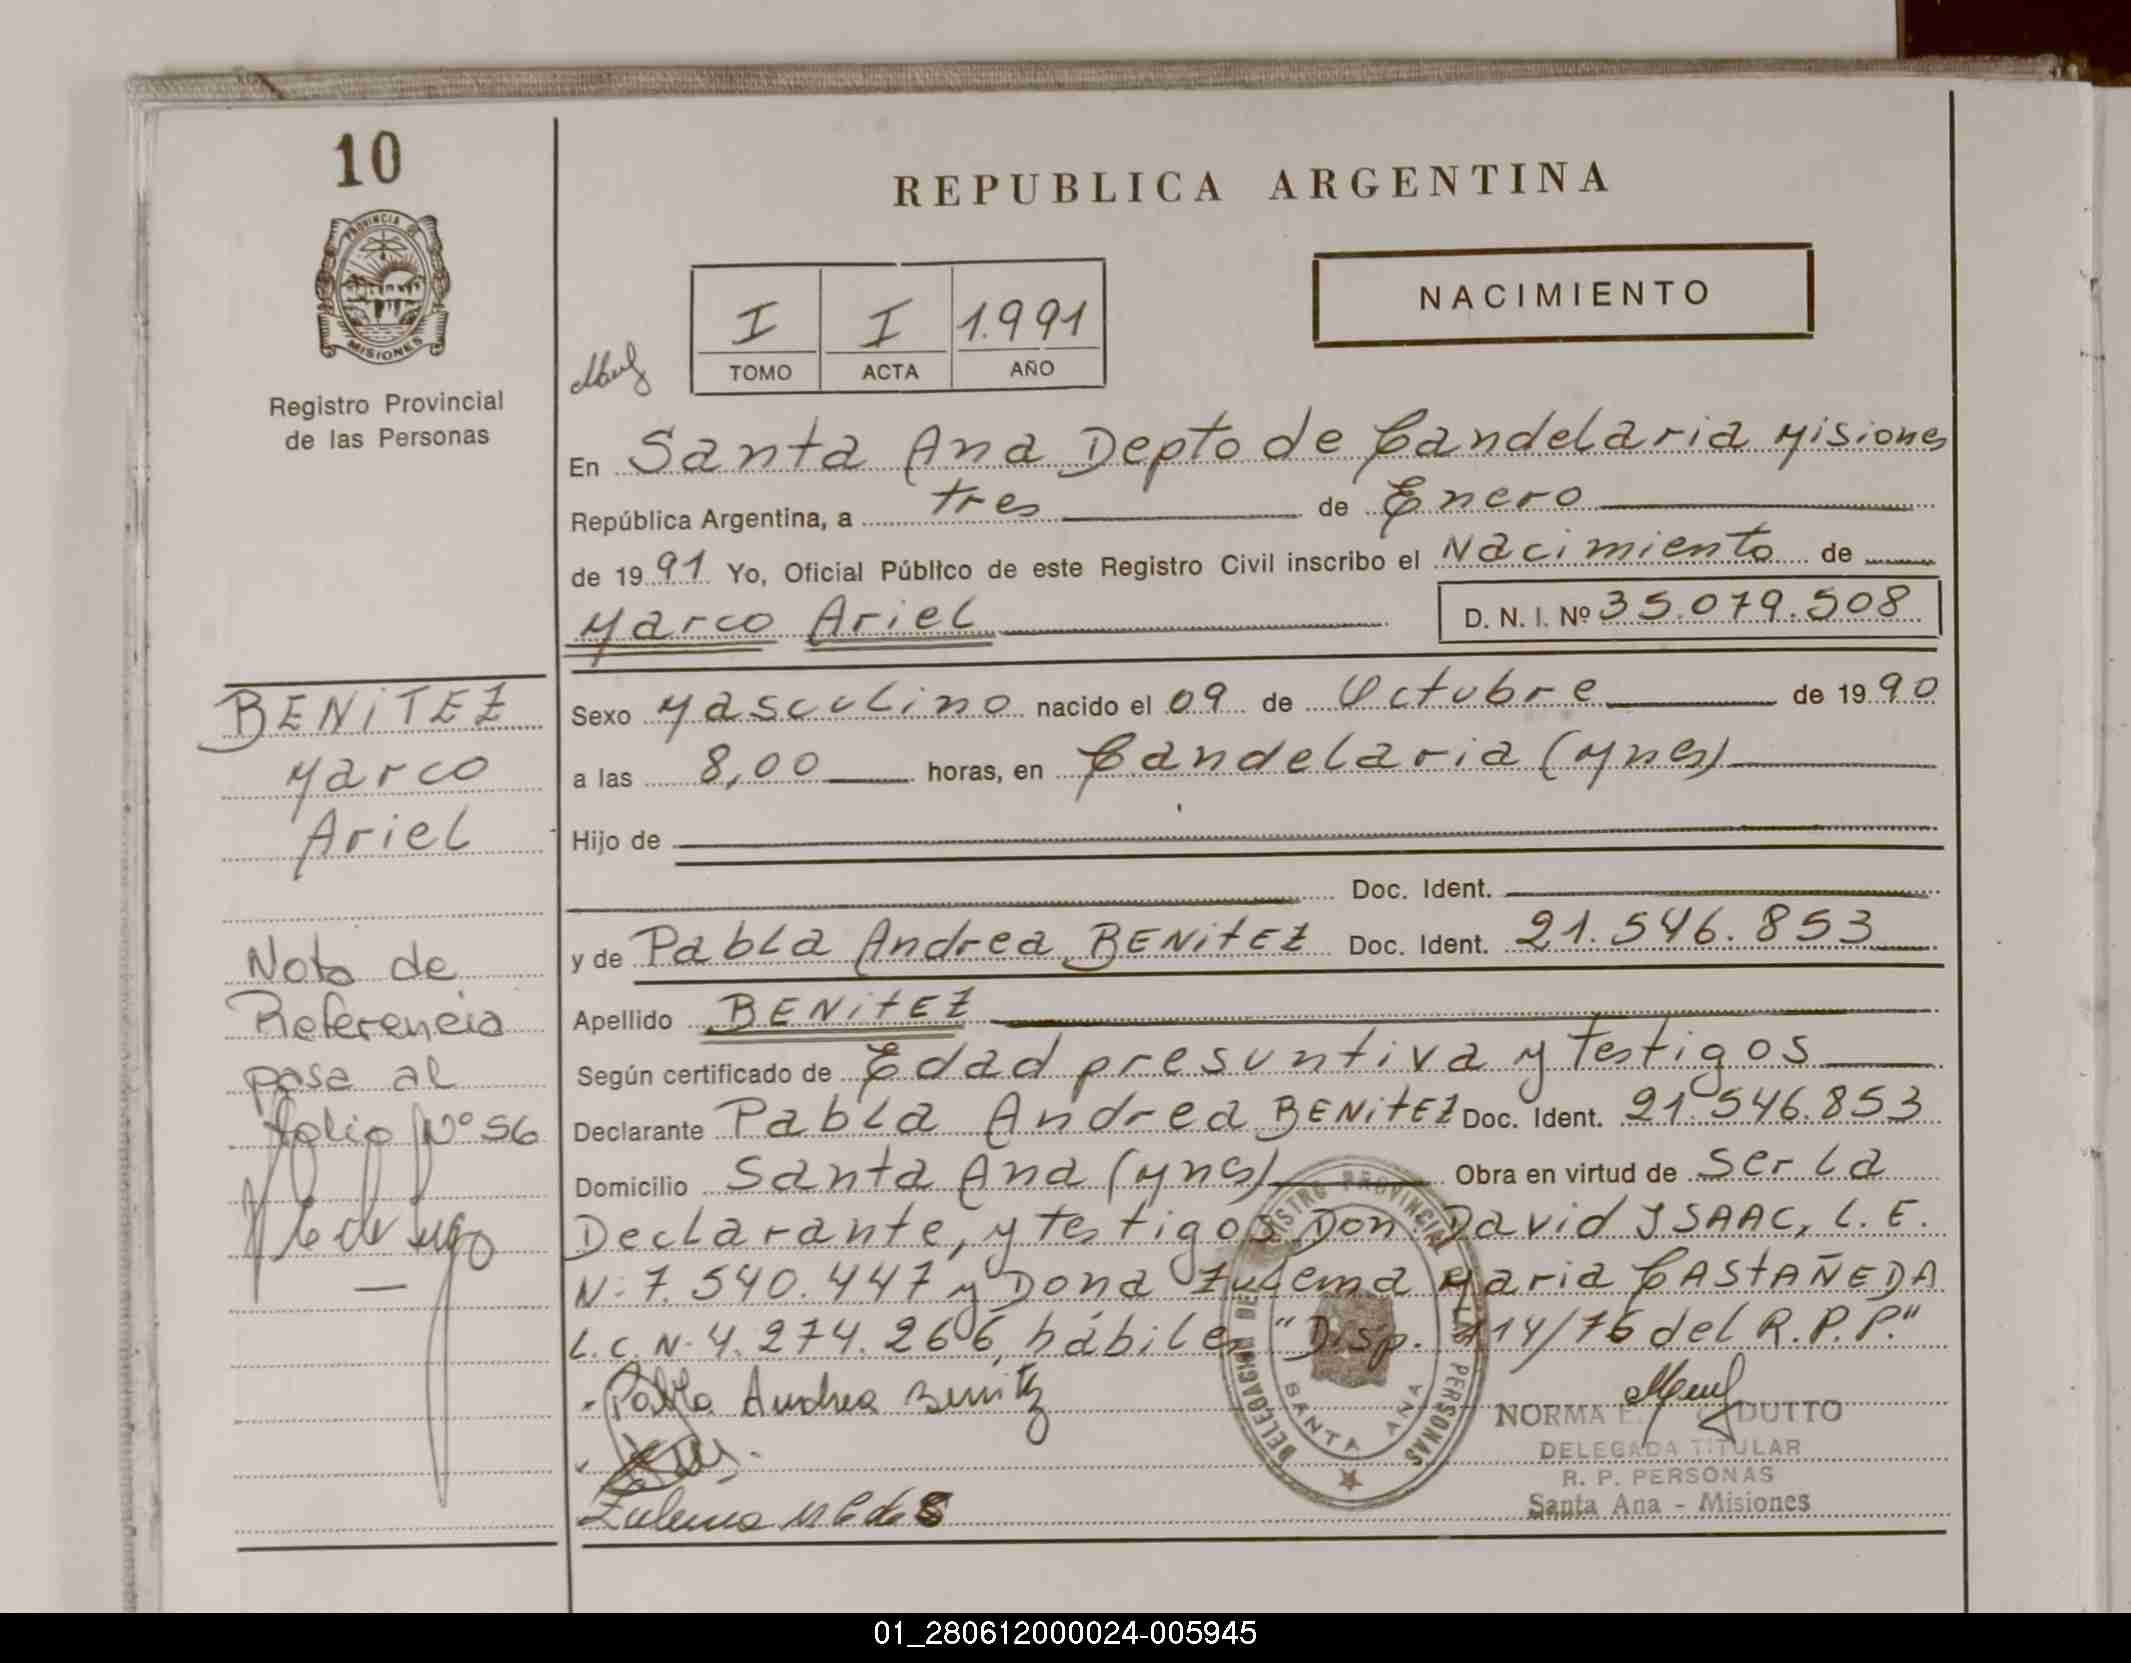 10
PROVINCIA DE
MISIONES
Registro Provincial
de las Personas
REPUBLICA ARGENTINA
I I 1.991
TOMO ACTA AÑO
NACIMIENTO
En Santa Ana Depto de Candelaria Misiones
República Argentina, a tres de Enero
de 1991 Yo, Oficial Público de este Registro Civil inscribo el Nacimiento de
Marco Ariel D. N. I. Nº 35.079.508
Sexo Masculino nacido el 09 de Octubre de 1990
a las 8,00 horas, en Candelaria (Mnes)
Hijo de
Doc. Ident.
y de Pabla Andrea BENITEZ Doc. Ident. 21.546.853
Apellido BENITEZ
Según certificado de Edad presuntiva y Testigos
Declarante Pabla Andrea BENITEZ Doc. Ident. 21.546.853
Domicilio Santa Ana (Mnes) Obra en virtud de ser la
Declarante, y testigos Don David ISAAC, L.E.
N- 7.540.447 y Dona Zulema Maria CASTAÑEDA
L.C. N- 4.274.266, hábiles "Disp. 114/76 del R.P.P."
Pabla Andrea Benitez
Zulema
BENITEZ
Marco
Ariel
Nota de
Referencia
pasa al
folio Nº 56
DELEGACION DEL REGISTRO PROVINCIAL DE LAS PERSONAS
SANTA ANA
NORMA E. DUTTO
DELEGADA TITULAR
R. P. PERSONAS
Santa Ana - Misiones
01_280612000024-005945